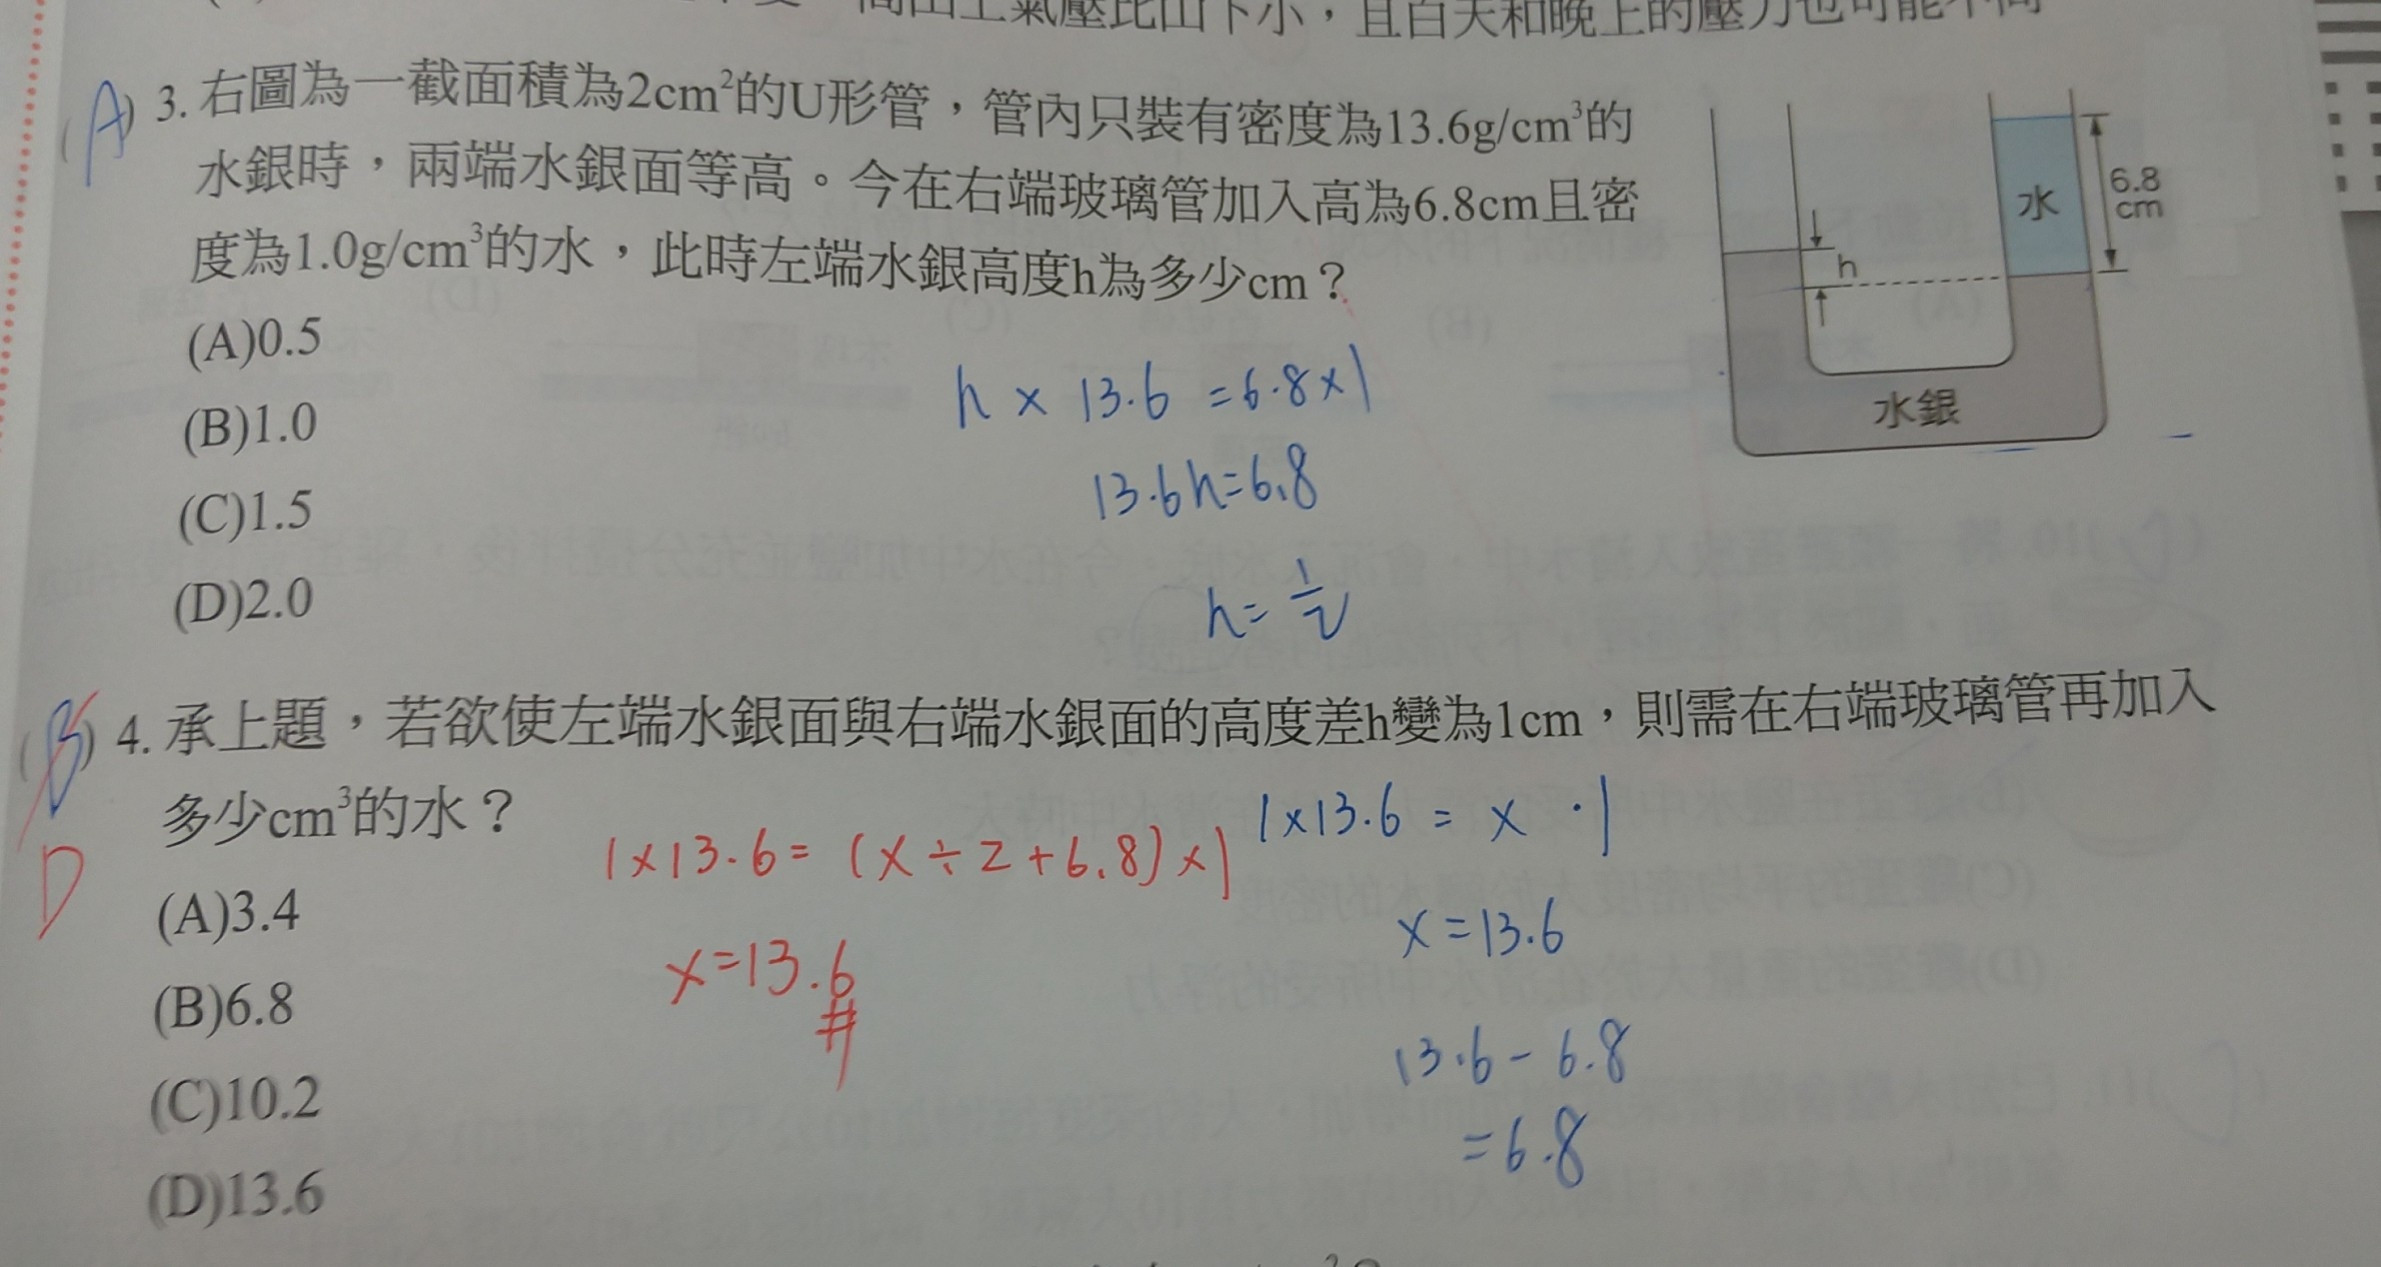 高山上氣壓比山下小，且白天和晚上的壓力也可能不同
(A) 3. 右圖為一截面積為2cm²的U形管，管內只裝有密度為13.6g/cm³的
水銀時，兩端水銀面等高。今在右端玻璃管加入高為6.8cm且密
度為1.0g/cm³的水，此時左端水銀高度h為多少cm？
(A)0.5
(B)1.0
(C)1.5
(D)2.0
h × 13.6 = 6.8 × 1
13.6h = 6.8
h = 1/2
水
6.8
cm
h
水銀
(B) 4. 承上題，若欲使左端水銀面與右端水銀面的高度差h變為1cm，則需在右端玻璃管再加入
多少cm³的水？
D
(A)3.4
(B)6.8
(C)10.2
(D)13.6
1 × 13.6 = (x ÷ 2 + 6.8) × 1
x = 13.6 #
1 × 13.6 = x · 1
x = 13.6
13.6 - 6.8
= 6.8